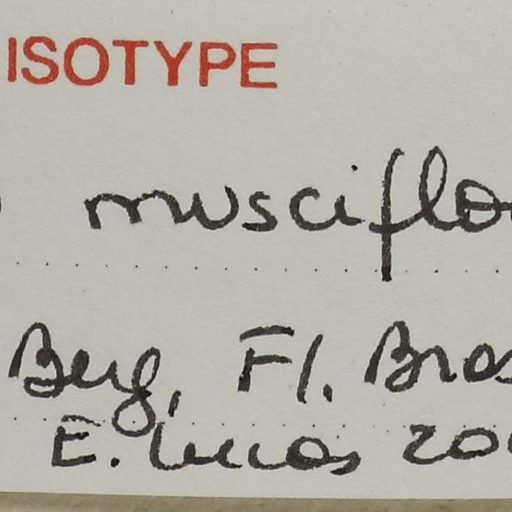 ISOTYPE
musciflo
Berg, Fl. Bras
E. Lucas 200